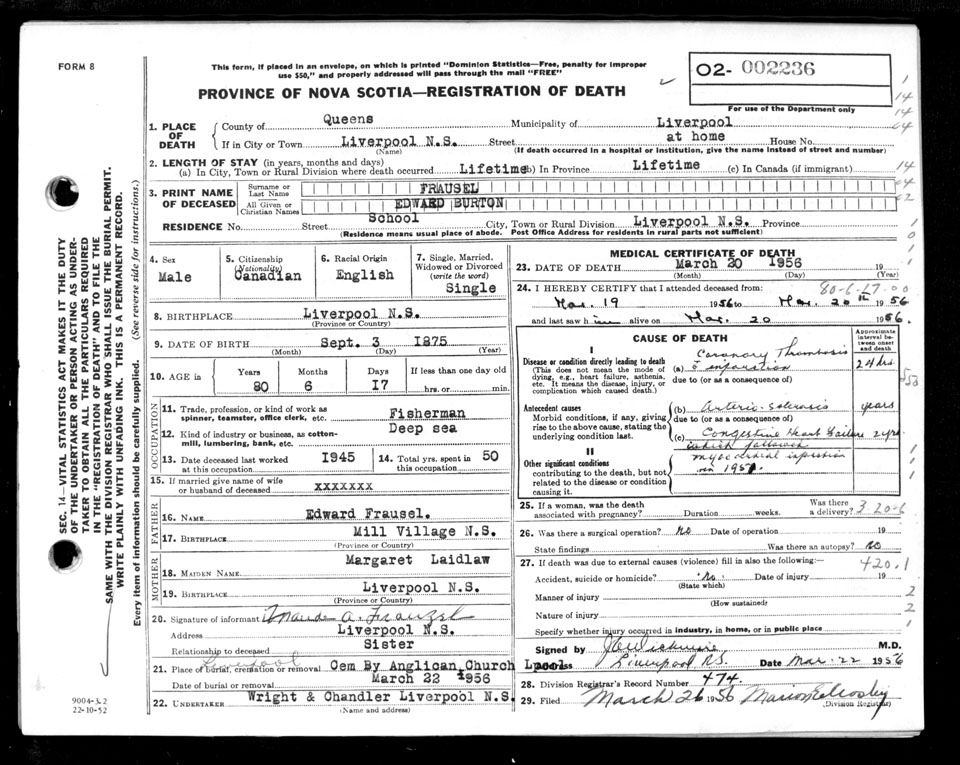 FORM 8
This form, if placed in an envelope, on which is printed "Dominion Statistics—Free, penalty for improper
use $50," and properly addressed will pass through the mail "FREE"
PROVINCE OF NOVA SCOTIA—REGISTRATION OF DEATH
O2- 002236
For use of the Department only
1. PLACE OF DEATH { County of Queens Municipality of Liverpool
If in City or Town Liverpool N.S. Street at home House No.
(Name) (If death occurred in a hospital or institution, give the name instead of street and number)
2. LENGTH OF STAY (in years, months and days)
(a) In City, Town or Rural Division where death occurred Lifetime (b) In Province Lifetime (c) In Canada (if immigrant)
3. PRINT NAME OF DECEASED { Surname or Last Name FRAUSEL
All Given or Christian Names EDWARD BURTON
RESIDENCE No. Street School City, Town or Rural Division Liverpool N.S. Province
(Residence means usual place of abode. Post Office Address for residents in rural parts not sufficient)
4. Sex
Male
5. Citizenship
(Nationality)
Canadian
6. Racial Origin
English
7. Single, Married,
Widowed or Divorced
(write the word)
Single
8. BIRTHPLACE Liverpool N.S.
(Province or Country)
9. DATE OF BIRTH Sept. 3 1875
(Month) (Day) (Year)
10. AGE in Years Months Days If less than one day old
80 6 17 hrs. or min.
OCCUPATION
11. Trade, profession, or kind of work as
spinner, teamster, office clerk, etc. Fisherman
12. Kind of industry or business, as cotton-
mill, lumbering, bank, etc. Deep sea
13. Date deceased last worked
at this occupation 1945
14. Total yrs. spent in
this occupation 50
15. If married give name of wife
or husband of deceased xxxxxxx
FATHER
16. NAME Edward Frausel.
17. BIRTHPLACE Mill Village N.S.
(Province or Country)
MOTHER
18. MAIDEN NAME Margaret Laidlaw
19. BIRTHPLACE Liverpool N.S.
(Province or Country)
20. Signature of informant A. Frauzel
Address Liverpool N.S.
Relationship to deceased Sister
21. Place of burial, cremation or removal Liverpool Cem By Anglican Church Lpool
Date of burial or removal March 22 1956
22. UNDERTAKER Wright & Chandler Liverpool N.S.
(Name and address)
MEDICAL CERTIFICATE OF DEATH
23. DATE OF DEATH March 20 1956 19
(Month) (Day) (Year)
24. I HEREBY CERTIFY that I attended deceased from 80-6-17-00
Mar. 19 1956 to Mar. 20th 1956
and last saw him alive on Mar. 20 1956.
CAUSE OF DEATH
Approximate interval between onset and death
I
Disease or condition directly leading to death
(This does not mean the mode of
dying, e.g., heart failure, asthenia,
etc. It means the disease, injury, or
complication which caused death.)
(a) Coronary Thrombosis
c infarction 24 hrs
due to (or as a consequence of)
Antecedent causes
Morbid conditions, if any, giving
rise to the above cause, stating the
underlying condition last.
(b) Arterio-sclerosis years
due to (or as a consequence of)
(c) Congestive Heart Failure 2 yrs
which followed
myocardial infarction
II
Other significant conditions
contributing to the death, but not
related to the disease or condition
causing it.
25. If a woman, was the death
associated with pregnancy? Duration weeks. Was there a delivery? 3-20-6
26. Was there a surgical operation? no Date of operation 19
State findings Was there an autopsy? no
27. If death was due to external causes (violence) fill in also the following: 420.1
Accident, suicide or homicide? No. Date of injury 19
(State which)
Manner of injury
(How sustained)
Nature of injury
Specify whether injury occurred in industry, in home, or in public place
Signed by M.D.
Address Liverpool N.S. Date Mar. 22 1956
28. Division Registrar's Record Number 474.
29. Filed March 26 1956
(Division Registrar)
SEC. 14—VITAL STATISTICS ACT MAKES IT THE DUTY
OF THE UNDERTAKER OR PERSON ACTING AS UNDER-
TAKER TO OBTAIN ALL THE PARTICULARS REQUIRED
IN THE "REGISTRATION OF DEATH" AND TO FILE THE
SAME WITH THE DIVISION REGISTRAR WHO SHALL ISSUE THE BURIAL PERMIT.
WRITE PLAINLY WITH UNFADING INK. THIS IS A PERMANENT RECORD.
Every item of information should be carefully supplied. (See reverse side for instructions.)
9004-3.2
22-10-52
1
14
14
04
14
04
02
1
0
1
1
1
1
2
2
1